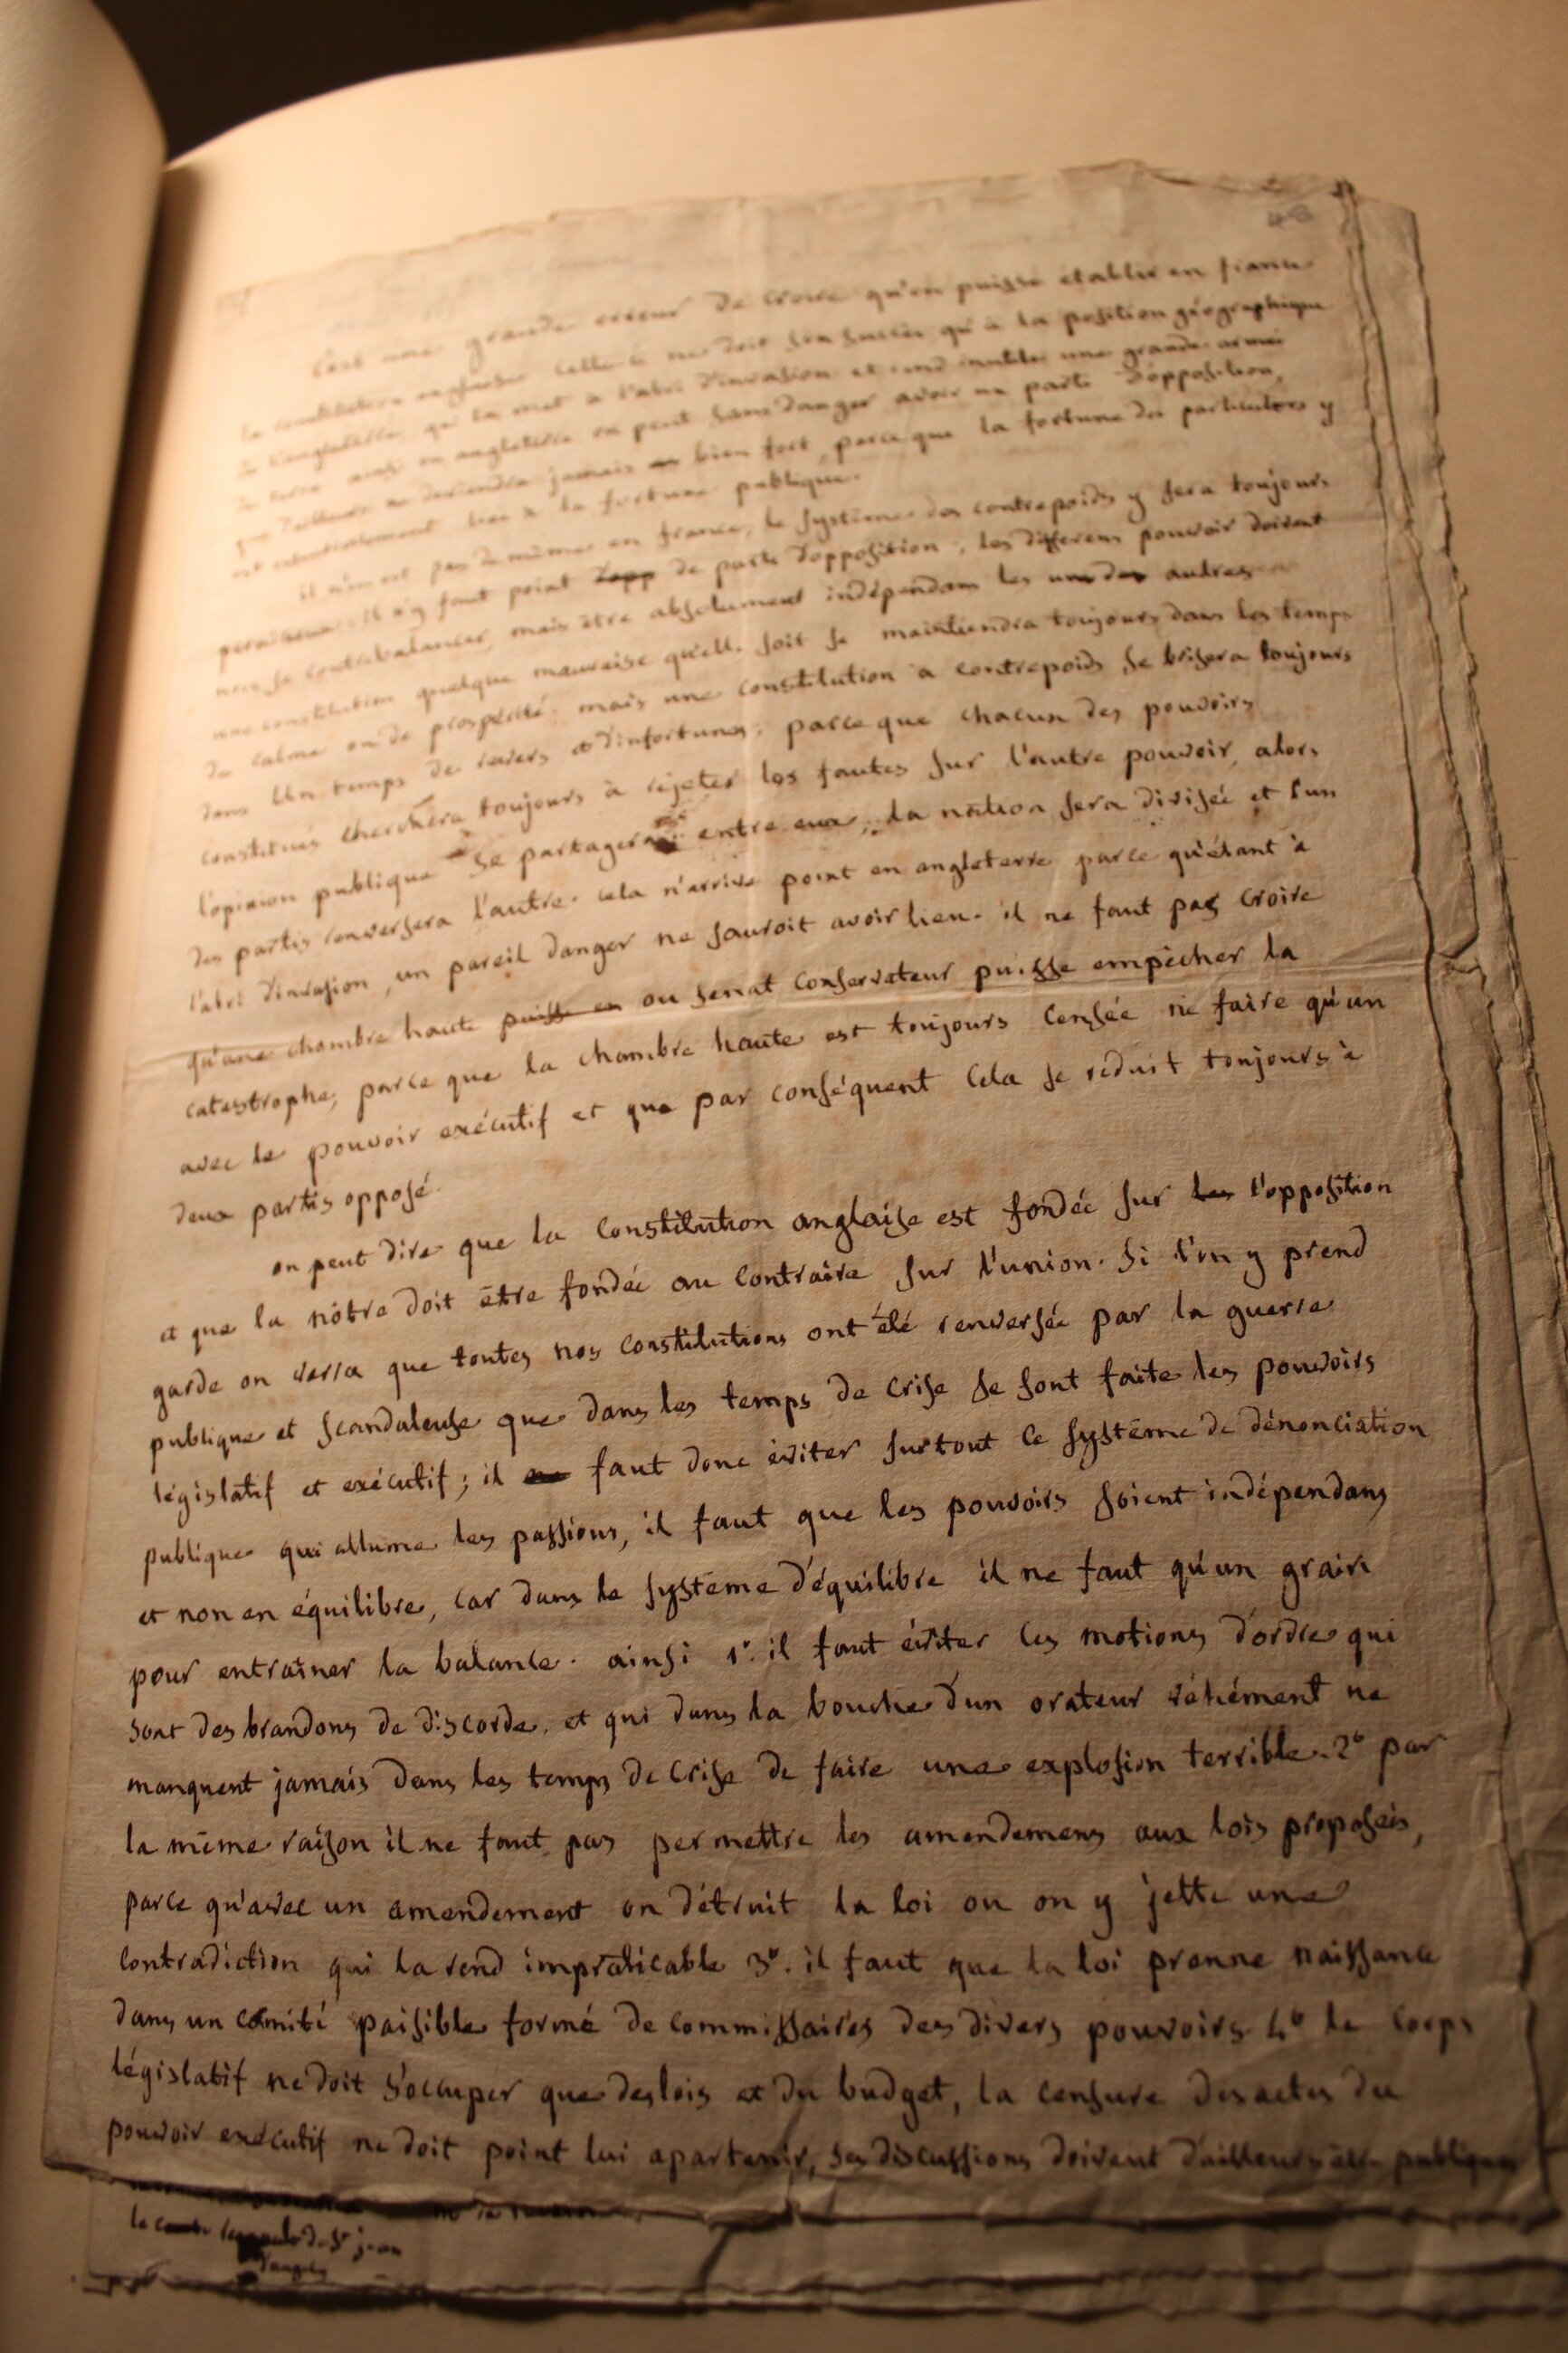 c'est une grande erreur de croire qu'on puisse établir en france
la constitution anglaise celle-ci ne doit son succès qu'à la position géographique
de l'angleterre, qui la met à l'abri d'invasion et rend inutile une grande armée
de terre ainsi en angleterre on peut sans danger avoir un parti d'opposition,
que d'ailleurs ne deviendra jamais bien fort, parce que la fortune des particuliers y
est essentiellement liée à la fortune publique.
il n'en est pas de même en france, le systême des contrepoids y sera toujours
pernicieux. il n'y faut point d'opp de parti d'opposition, les différens pouvoir doivent
non se contrebalancer, mais être absolument indépendans les uns des autres
une constitution quelque mauvaise qu'elle soit se maintiendra toujours dans les temps
de calme ou de prospérité. mais une constitution à contrepoids se brisera toujours
dans un temps de revers et d'infortunes, parce que chacun des pouvoirs
constitués cherchera toujours à rejeter les fautes sur l'autre pouvoir, alors
l'opinion publique se partagera entre eux, la nation sera divisée et l'un
des partis renversera l'autre. cela n'arrive point en angleterre parce qu'étant à
l'abri d'invasion, un pareil danger ne sauroit avoir lieu. il ne faut pas croire
qu'une chambre haute puisse en ou senat conservateur puisse empêcher la
catastrophe, parce que la chambre haute est toujours censée ne faire qu'un
avec le pouvoir exécutif et que par conséquent cela se réduit toujours à
deux partis opposé.
on peut dire que la constitution anglaise est fondée sur les l'opposition
et que la nôtre doit être fondée au contraire sur l'union. si l'on y prend
garde on verra que toutes nos constitutions ont été renversée par la guerre
publique et scandaleuse que dans les temps de crise se sont faite les pouvoirs
législatif et exécutif; il ne faut donc éviter surtout ce systême de dénonciation
publique qui allume les passions, il faut que les pouvoirs soient indépendans
et non en équilibre, car dans le systeme d'équilibre il ne faut qu'un grain
pour entraîner la balance. ainsi 1°. il faut éviter les motions d'ordre qui
sont des brandons de discorde, et qui dans la bouche d'un orateur véhément ne
manquent jamais dans les temps de crise de faire une explosion terrible. 2° par
la même raison il ne faut pas permettre les amendemens aux lois proposées,
parce qu'avec un amendement on détruit la loi ou on y jette une
contradiction qui la rend impraticable 3°. il faut que la loi prenne naissance
dans un comité paisible formé de commissaires des divers pouvoirs. 4° le corps
législatif ne doit s'occuper que des lois et du budget, la censure des actes du
pouvoir exécutif ne doit point lui apartenir, ses discussions doivent d'ailleurs être publiques
le comte de St jean
d'angely